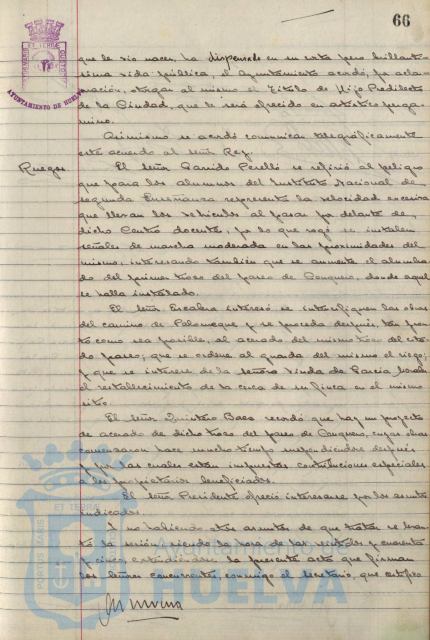 66
AYUNTAMIENTO DE HUELVA
que le vio nacer, ha dispensado en su corta pero brillantí-
sima vida pública, el Ayuntamiento acordó, por acla-
mación, otorgar al mismo el Título de Hijo Predilecto
de la Ciudad, que le será ofrecido en artístico perga-
mino.
Asimismo se acordó comunicar telegráficamente
este acuerdo al señor Rey.
Ruegos.
El señor Garrido Perelló se refirió al peligro
que para los alumnos del Instituto Nacional de
segunda Enseñanza representa la velocidad excesiva
que llevan los vehículos al pasar por delante de
dicho Centro docente, por lo que rogó se instalen
señales de marcha moderada en las proximidades del
mismo, interesando también que se aumente el alumbra-
do del primer trozo del paseo de Conquero, donde aquel
se halla instalado.
El señor Escalera interesó se intensifiquen las obras
del camino de Palomeque y se proceda después, tan pron-
to como sea posible, al acerado del mismo trozo del cita-
do paseo; que se ordene al guarda del mismo el riego;
y que se interese de la señora Viuda de García
el restablecimiento de la cerca de su finca en el mismo
sitio.
El señor Quintero Baez recordó que hay un proyecto
de acerado de dicho trozo del paseo de Conquero, cuyas obras
comenzaron hace mucho tiempo suspendiéndose después
y por las cuales están impuestas contribuciones especiales
a los propietarios beneficiados.
El señor Presidente ofreció interesarse por los asuntos
indicados.
Y no habiendo otros asuntos de que tratar se levan-
tó la sesión, siendo la hora de las veintidós y cuarenta
y cinco, extendiéndose la presente acta que firman
los señores concurrentes, conmigo el Secretario, que certifico
Ayuntamiento de
HUELVA